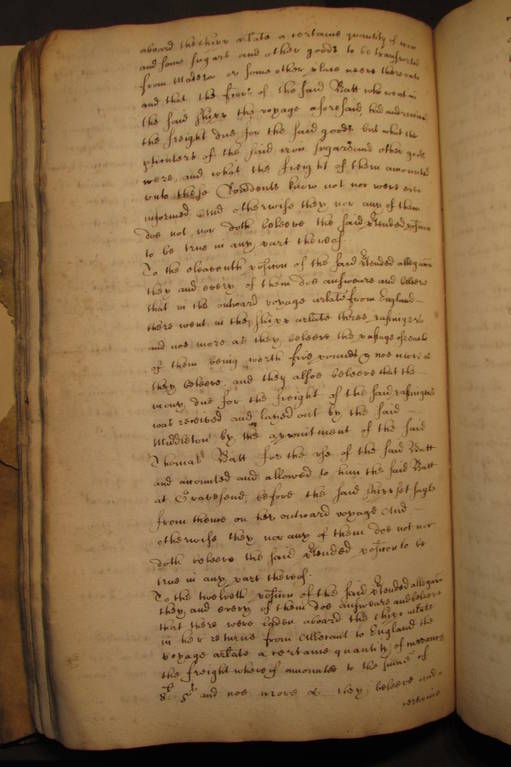 aboard the shipp arlate a certaine quantity of iron
and some sugars and other goods to be transported
from Madera or some other place neere thereunto
and that the ffactor of the said Batt who went in
the said shipp the voyage aforesaid, had and received
the freight due for the said goods but what the
quantety of the said iron sugars and other goods
were, and what the freight of them amounted
unto these Rendents know not nor were ever
informed And otherwise they nor any of them
doe not, nor doth beleeve the said ptended position
to be true in any part thereof
To the eleaventh position of the said ptended allegation
they and every of them doe answeare and beleeve
that in the outward voyage arlate from England
there went in the shipp arlate three passingers
and noe more as they beleeve the passage of each
of them being worth five pounds & noe more as
they beleeve, and they alsoe beleeve that the
money due for the freight of the said passingers
was received and layed out by the said
Middleton by the appointment of the said
Thomas Batt for the use of the said Batt
and accounted and allowed to him the said Batt
at Gravesend, before the said shipp set sayle
from thence on her outward voyage And
otherwise they nor any of them doe not nor
doth beleeve the said ptended position to be
true in any part thereof
To the twelveth position of the said ptended allegation
they and every of them doe answeare and beleeve
that there were laden aboard the shipp arlate
in her returne from to England the
voyage arlate a certaine quantity of
the freight whereof amounted to the summe of
and noe more & they beleeve and
certaine